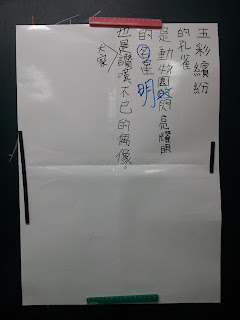 五彩繽紛
的孔雀
是動物園閃亮耀眼
的名星
明
也是讚嘆不已的偶像。
大家